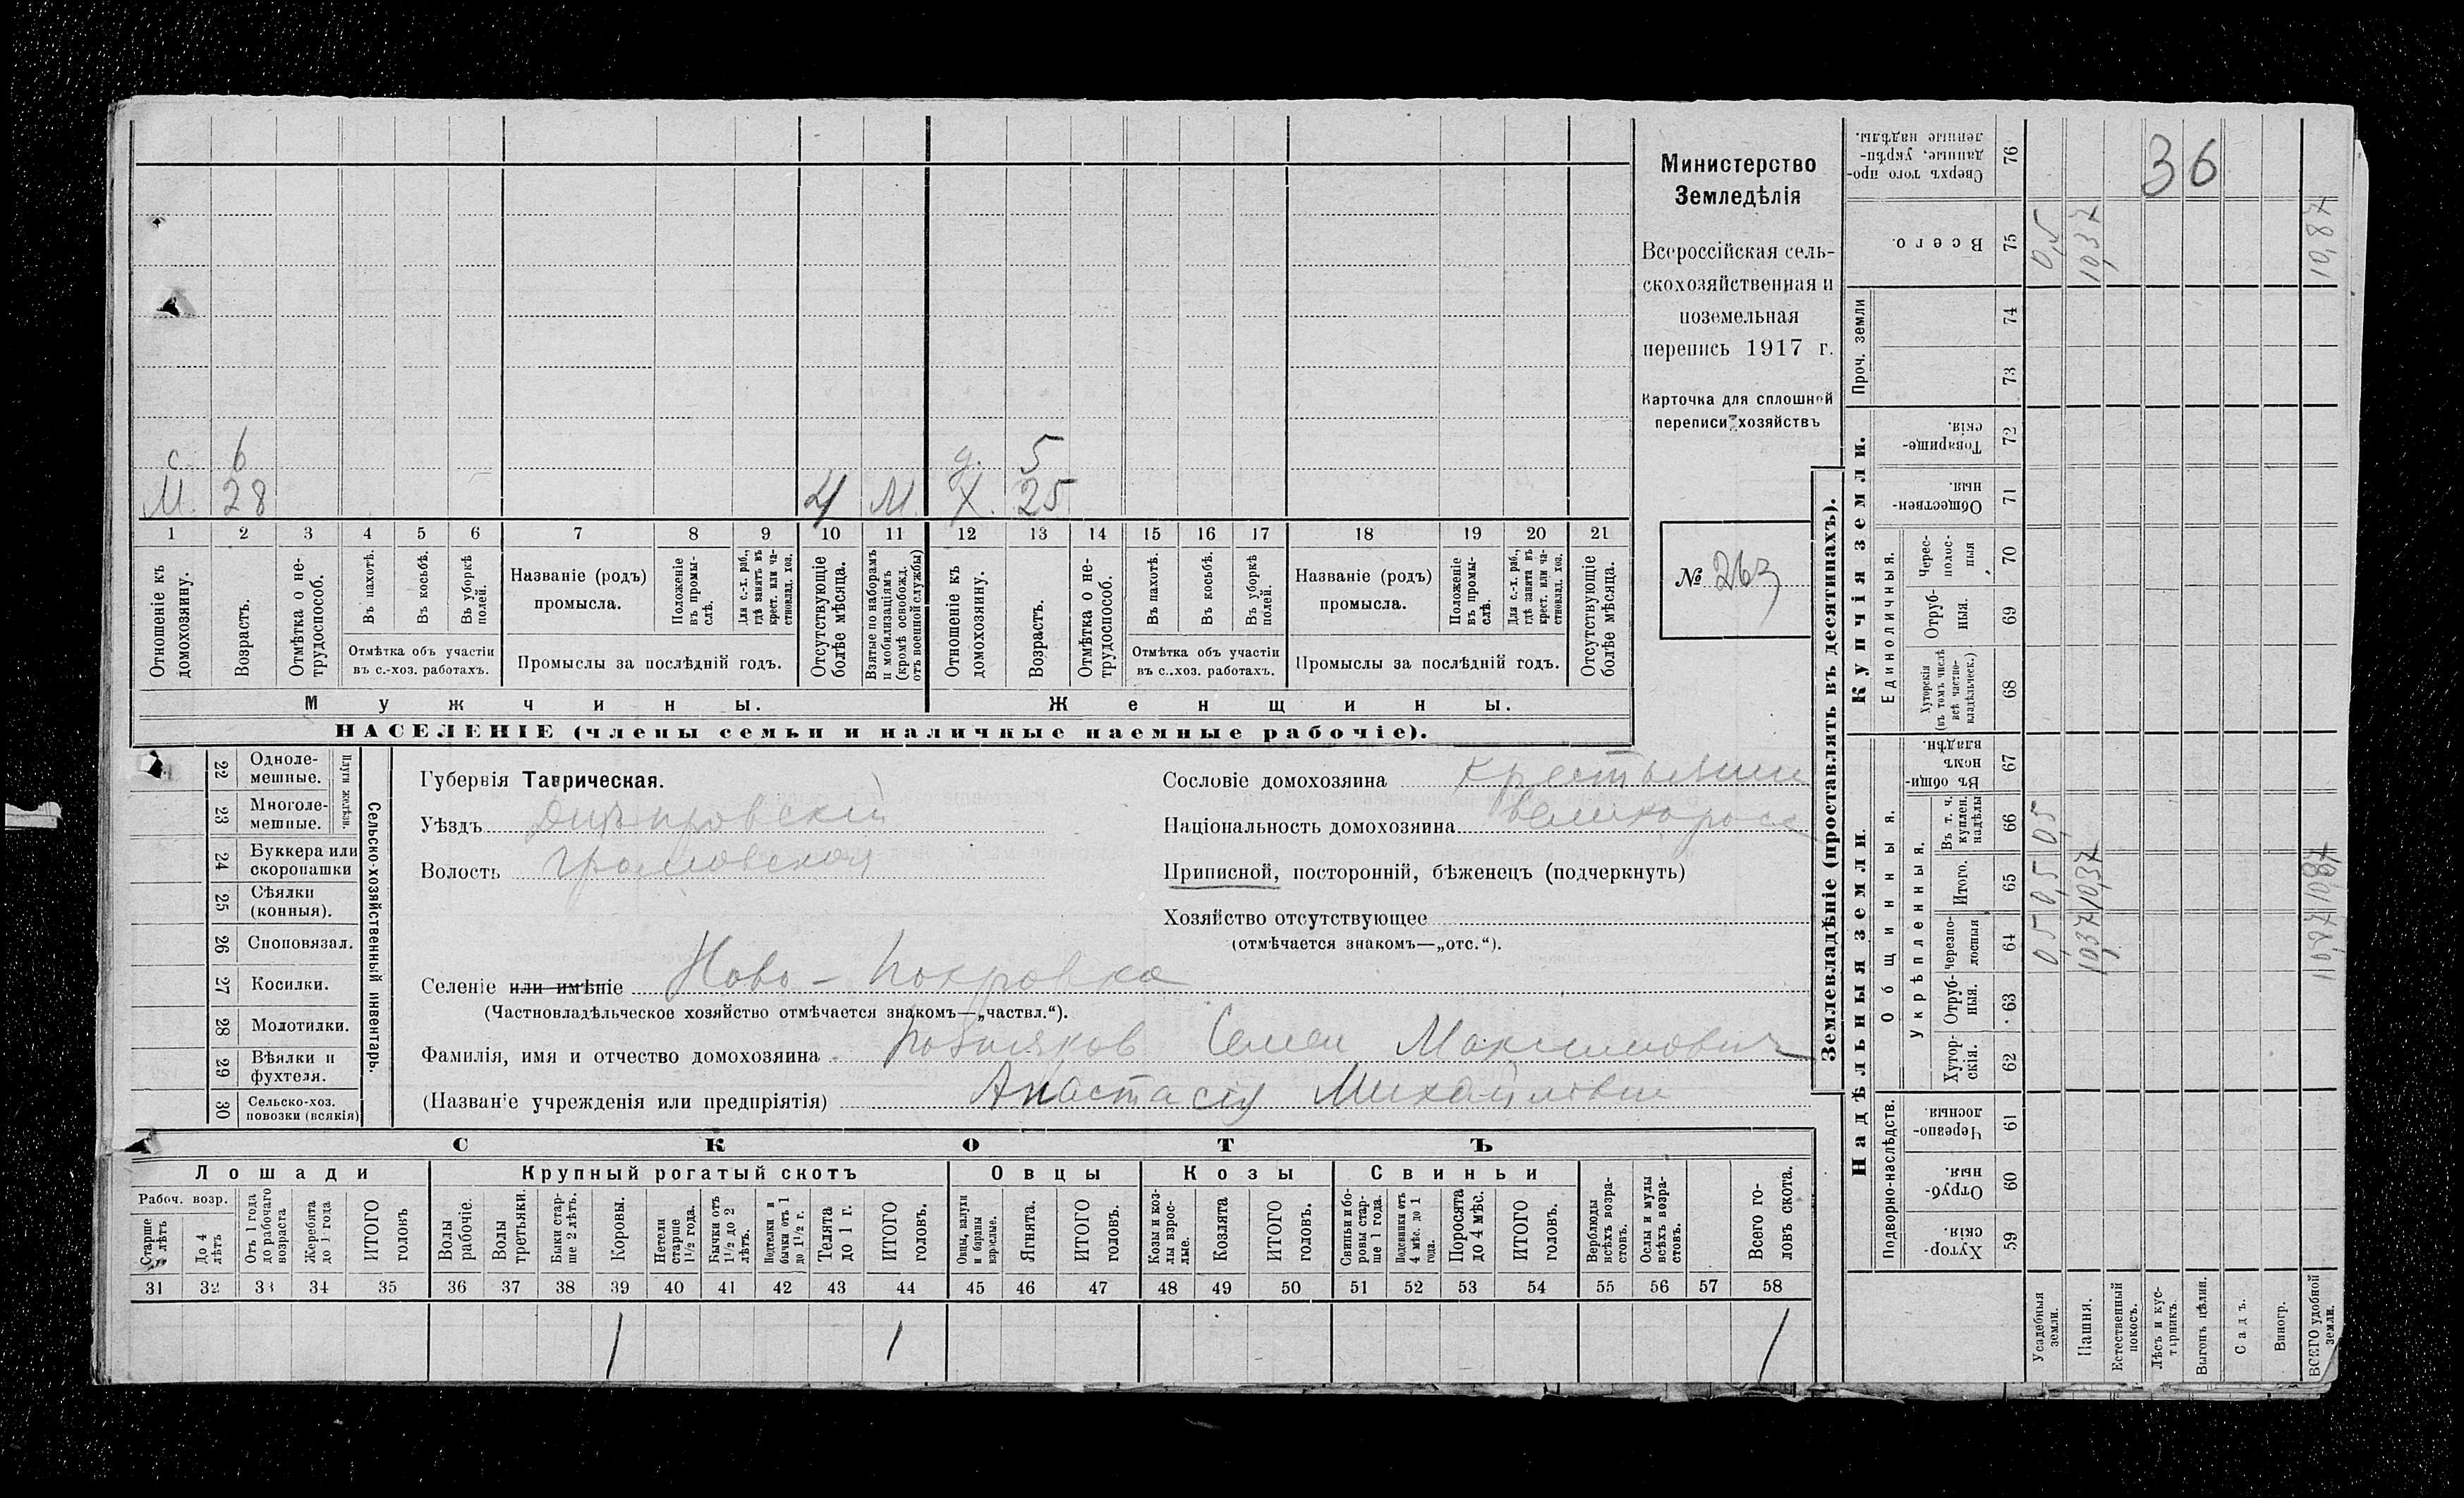 Министерство
Земледѣлія
Всероссійская сель-
скохозяйственная и
поземельная
перепись 1917 г.
Карточка для сплошной
переписи хозяйствъ
№ 263
с. 6 д. 5
М. 28 4 М. Х. 25
1 2 3 4 5 6 7 8 9 10 11 12 13 14 15 16 17 18 19 20 21
Отношеніе къ домохозяину.
Возрастъ.
Отмѣтка о не-трудоспособ.
Въ пахотѣ.
Въ косьбѣ.
Въ уборкѣ полей.
Отмѣтка объ участіи
въ с.-хоз. работахъ.
Названіе (родъ)
промысла.
Положеніе въ промы-слѣ.
Для с.-х. раб., гдѣ занятъ въ крест. или ча-стновлад. хоз.
Промыслы за послѣдній годъ.
Отсутствующіе болѣе мѣсяца.
Взятые по наборамъ и мобилизаціямъ (кромѣ освобожд. отъ военной службы)
Отношеніе къ домохозяину.
Возрастъ.
Отмѣтка о не-трудоспособ.
Въ пахотѣ.
Въ косьбѣ.
Въ уборкѣ полей.
Отмѣтка объ участіи
въ с..хоз. работахъ.
Названіе (родъ)
промысла.
Положеніе въ промы-слѣ.
Для с.-х. раб., гдѣ занята въ крест. или ча-стновлад. хоз.
Промыслы за послѣдній годъ.
Отсутствующіе болѣе мѣсяца.
Мужчины. Женщины.
НАСЕЛЕНІЕ (члены семьи и наличные наемные рабочіе).
22 Одноле-мешные.
23 Многоле-мешные.
Плуги желѣзн.
24 Буккера или скоропашки
25 Сѣялки (конныя).
26 Сноповязал.
27 Косилки.
28 Молотилки.
29 Вѣялки и фухтеля.
30 Сельско-хоз. повозки (всякія)
Сельско-хозяйственный инвентарь.
Губернія Таврическая.
Уѣздъ Днѣпровскій
Волость Громовская
Сословіе домохозяина Крестьянин
Національность домохозяина великоросс
Приписной, посторонній, бѣженецъ (подчеркнуть)
Хозяйство отсутствующее
(отмѣчается знакомъ—„отс.“).
Селеніе или имѣніе Ново-Покровка
(Частновладѣльческое хозяйство отмѣчается знакомъ—„частвл.“).
Фамилія, имя и отчество домохозяина Семен Максимович
(Названіе учрежденія или предпріятія) Анастасія Михайловна
СКОТЪ
Лошади Крупный рогатый скотъ Овцы Козы Свиньи
Рабоч. возр.
Старше лѣтъ
До 4 лѣтъ
Отъ 1 года до рабочаго возраста
Жеребята до 1 года
ИТОГО головъ
Волы рабочіе.
Волы третьяки.
Быки стар-ше 2 лѣтъ.
Коровы.
Нетели старше 1½ года.
Бычки отъ 1½ до 2 лѣтъ.
Подтелки и бычки отъ 1 до 1½ г.
Телята до 1 г.
ИТОГО головъ.
Овцы, валухи и бараны взрослые.
Ягнята.
ИТОГО головъ.
Козы и коз-лы взрос-лые.
Козлята
ИТОГО головъ.
Свиньи и бо-ровы стар-ше 1 года.
Подсвинки отъ 4 мѣс. до 1 года.
Поросята до 4 мѣс.
ИТОГО головъ.
Верблюды всѣхъ возра-стовъ.
Ослы и мулы всѣхъ возра-стовъ.
Всего го-ловъ скота.
31 32 33 34 35 36 37 38 39 40 41 42 43 44 45 46 47 48 49 50 51 52 53 54 55 56 57 58
1 1 1
Землевладѣніе (проставлять въ десятинахъ).
Надѣльныя земли. Купчія земли.
Проч. земли
Подворно-наслѣдств.
Общинныя.
Укрѣпленныя.
Единоличныя.
Хутор-скія. 59
Отруб-ныя. 60
Черезпо-лосныя. 61
Хутор-скія. 62
Отруб-ныя. 63
черезпо-лосныя 64
Итого. 65
Въ т. ч. куплен. надѣлы 66
Въ общи-номъ владѣн. 67
Хуторскія (въ томъ числѣ всѣ частно-владѣльческ.) 68
Отруб-ныя. 69
Черес-полос-ныя 70
Обществен-ныя. 71
Товарище-скія. 72
73
74
Всего. 75
Сверхъ того про-данные, укрѣп-ленные надѣлы. 76
36
Усадебныя земли. 0,5 0,5 0,5 0,5
Пашня. 10,37 10,37 10,37
Естественный покосъ.
Лѣсъ и кус-тарникъ.
Выгонъ цѣлин.
Садъ.
Виногр.
ВСЕГО удобной земли. 10,87 10,87 10,87